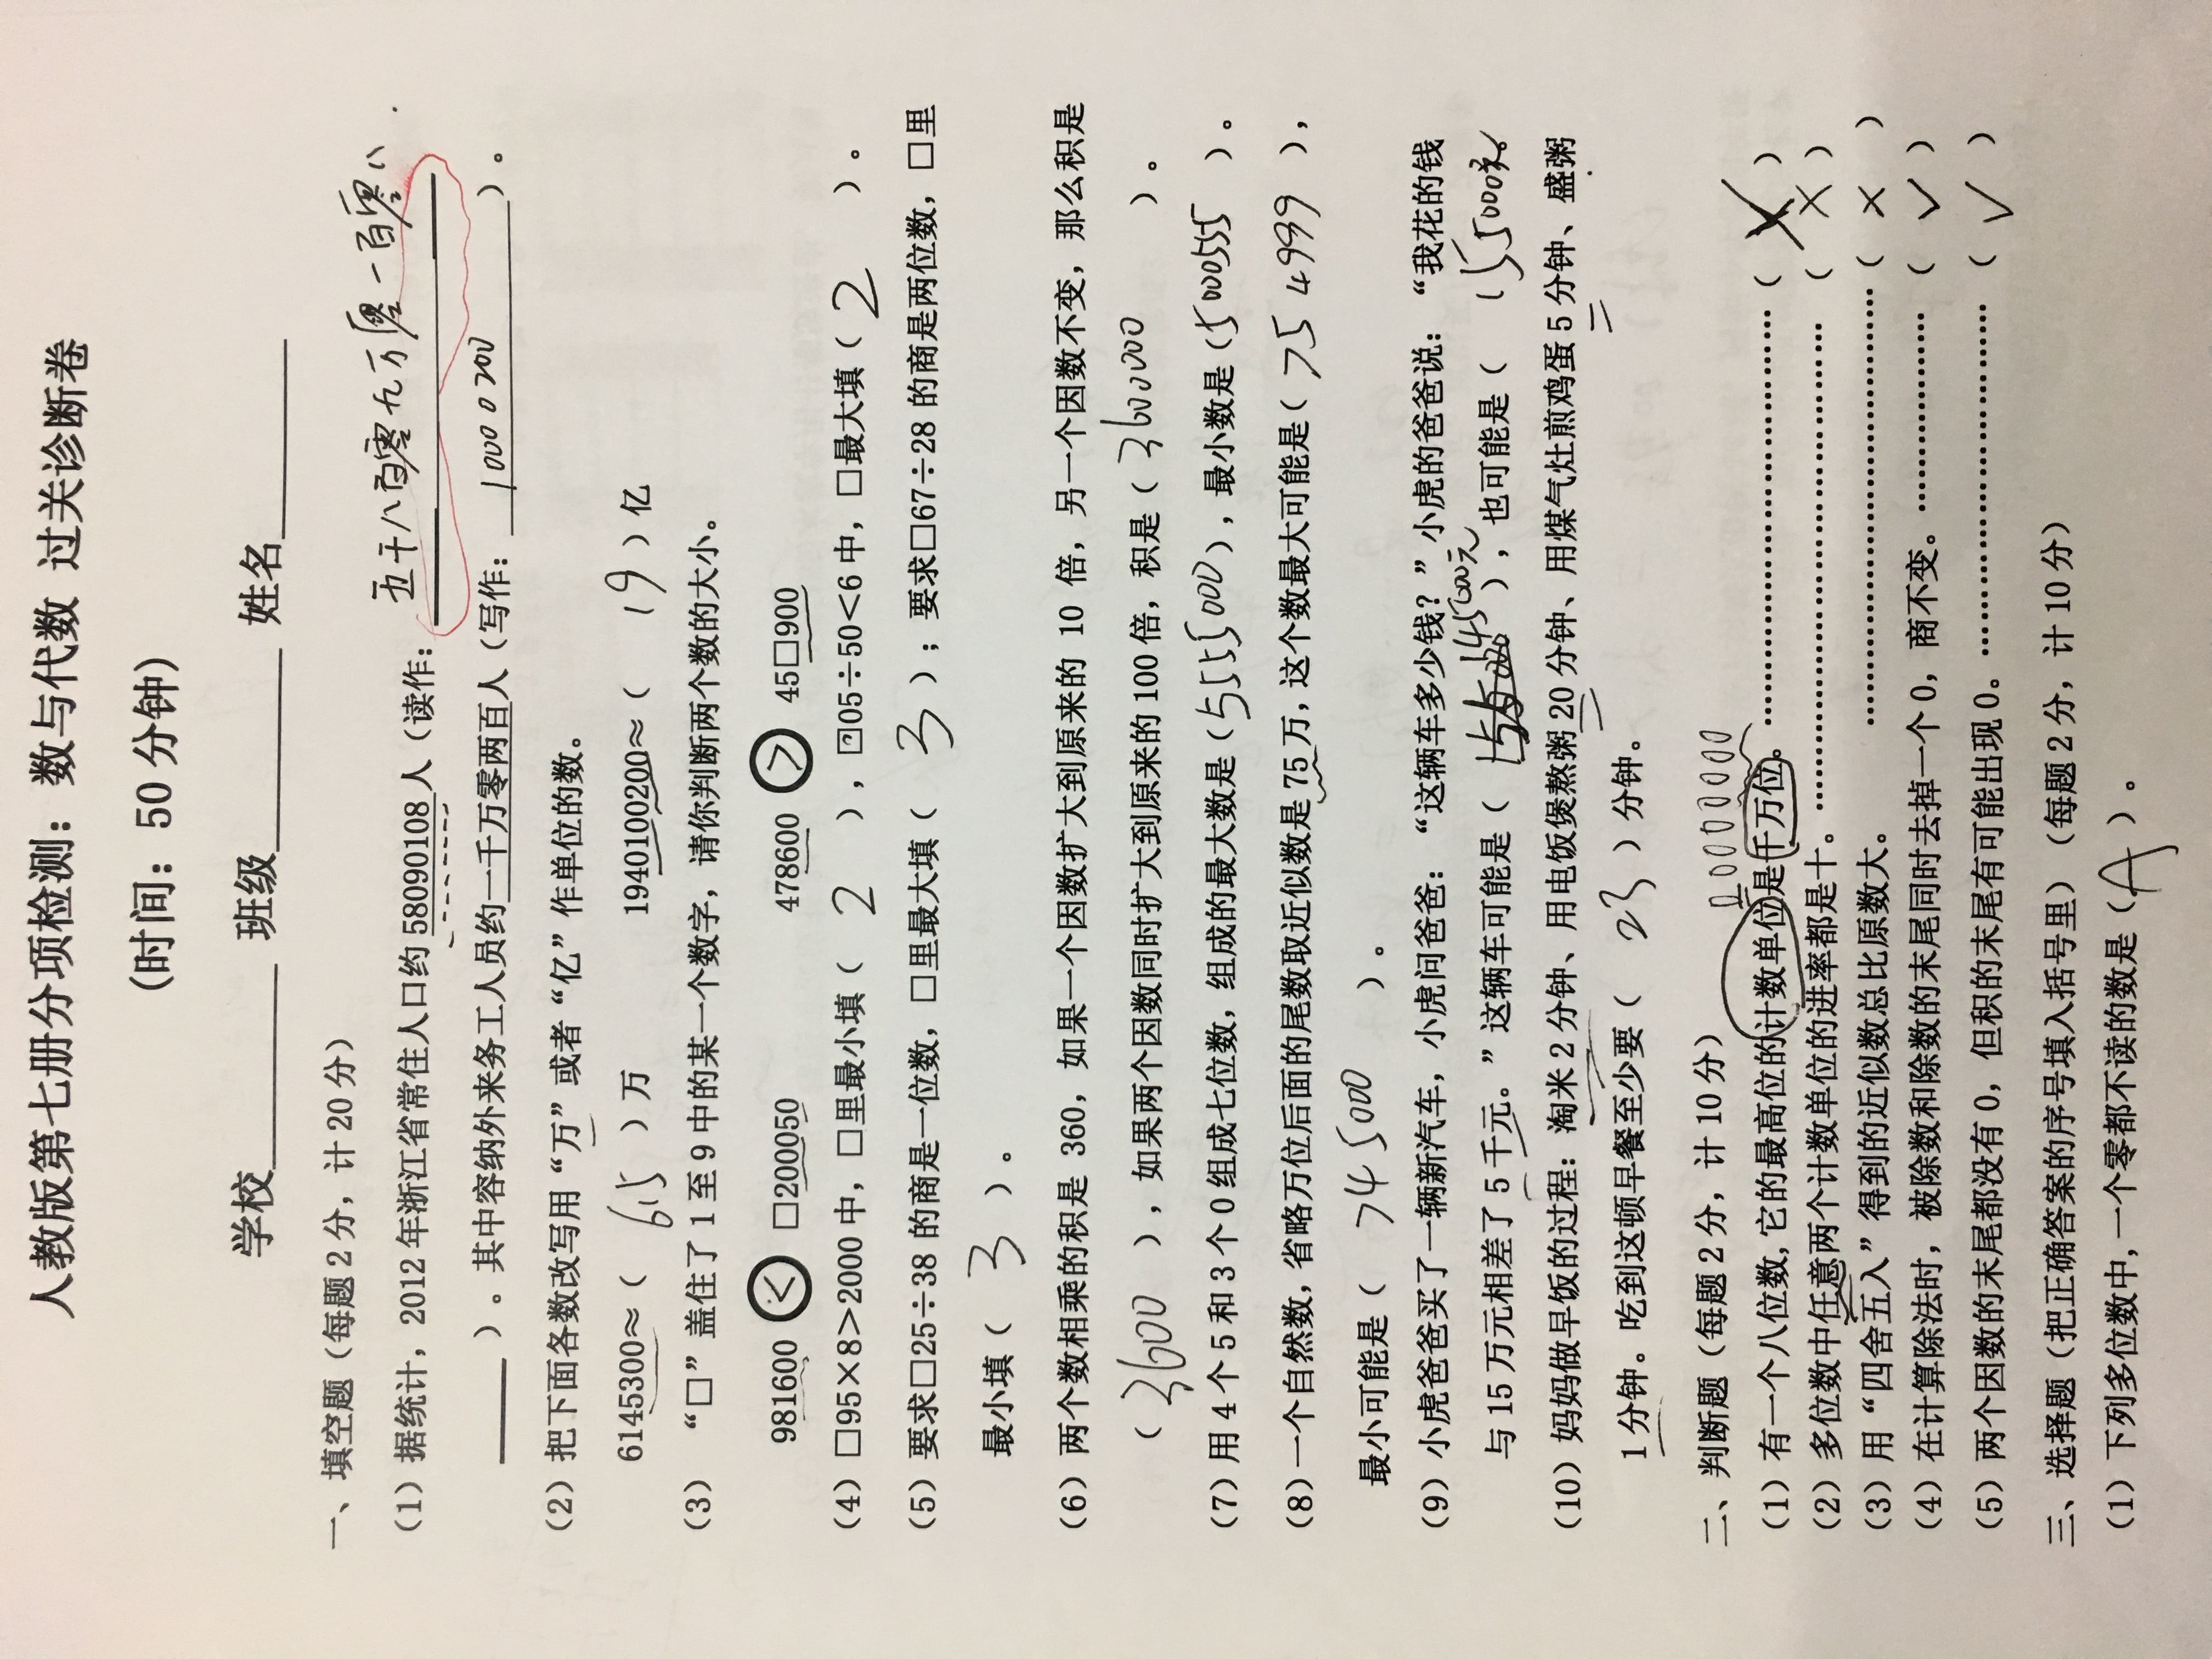 人教版第七册分项检测：数与代数 过关诊断卷
(时间：50 分钟)
学校________ 班级________ 姓名________
一、填空题（每题 2 分，计 20 分）
五千八百零九万零一百零八
（1）据统计，2012 年浙江省常住人口约 58090108 人（读作：
）。其中容纳外来务工人员约一千万零两百人（写作： 10000200 ）。
（2）把下面各数改写用“万”或者“亿”作单位的数。
6145300≈（ 615 ）万 1940100200≈（ 19 ）亿
（3） “□”盖住了 1 至 9 中的某一个数字，请你判断两个数的大小。
981600 < □200050 478600 > 45□900
（4）□95×8>2000 中，□里最小填（ 2 ），□05÷50<6 中，□最大填（ 2 ）。
（5）要求□25÷38 的商是一位数，□里最大填（ 3 ）；要求□67÷28 的商是两位数，□里
最小填（ 3 ）。
（6）两个数相乘的积是 360，如果一个因数扩大到原来的 10 倍，另一个因数不变，那么积是
（ 3600 ），如果两个因数同时扩大到原来的 100 倍，积是（ 3600000 ）。
（7）用 4 个 5 和 3 个 0 组成七位数，组成的最大数是（5555000），最小数是（5000555 ）。
（8）一个自然数，省略万位后面的尾数取近似数是 75 万，这个数最大可能是（ 754999 ），
最小可能是（ 745000 ）。
（9）小虎爸爸买了一辆新汽车，小虎问爸爸：“这辆车多少钱？”小虎的爸爸说：“我花的钱
与 15 万元相差了 5 千元。”这辆车可能是（ 145000元 ），也可能是（ 155000元
（10）妈妈做早饭的过程：淘米 2 分钟、用电饭煲熬粥 20 分钟、用煤气灶煎鸡蛋 5 分钟、盛粥
1 分钟。吃到这顿早餐至少要（ 23 ）分钟。
二、判断题（每题 2 分，计 10 分）
00000000
（1）有一个八位数，它的最高位的计数单位是千万位。………………………………（ × ）
（2）多位数中任意两个计数单位的进率都是十。………………………………………（ × ）
（3）用“四舍五入”得到的近似数总比原数大。 ………………………………（ × ）
（4）在计算除法时，被除数和除数的末尾同时去掉一个 0，商不变。………………（ √ ）
（5）两个因数的末尾都没有 0，但积的末尾有可能出现 0。…………………………（ √ ）
三、选择题（把正确答案的序号填入括号里）（每题 2 分，计 10 分）
（1）下列多位数中，一个零都不读的数是（ A ）。